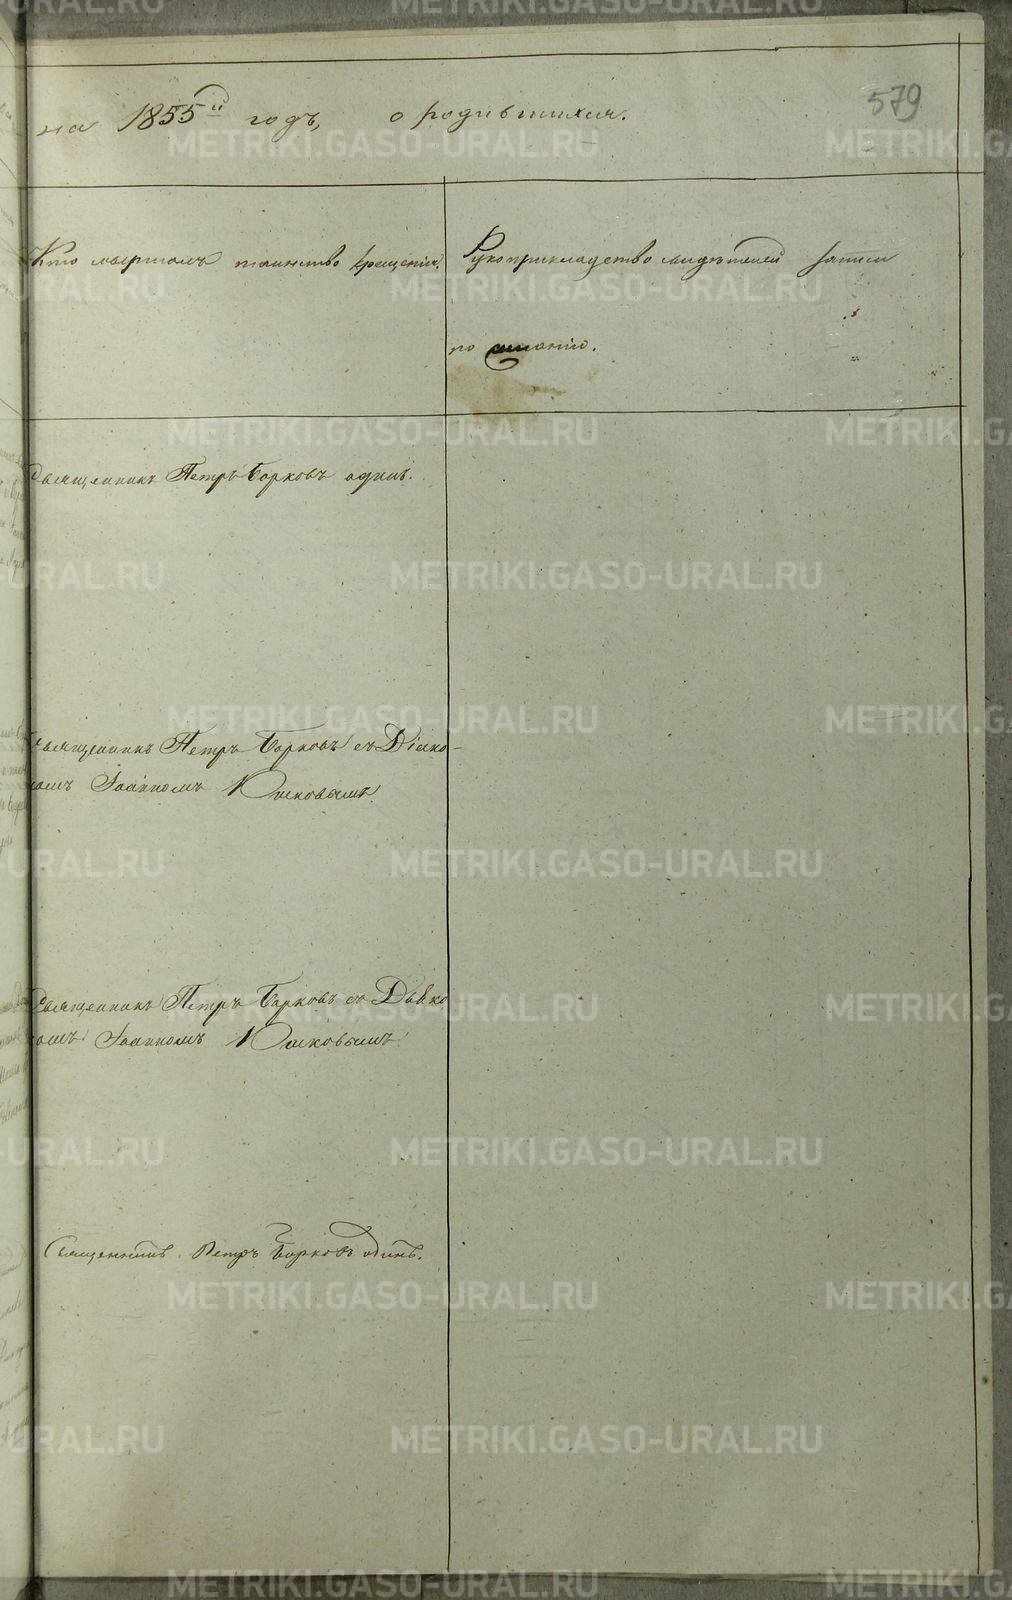 на 1855й годъ, о родившихся.
579
Кто совершалъ таинство крещенія.
Рукоприкладство свидѣтелей записи
по желанію.
Священникъ Петръ Барковъ одинъ.
Священникъ Петръ Барковъ съ Діако-
номъ Іоанномъ
Священникъ Петръ Барковъ съ Діако
номъ Іоанномъ
Священникъ Петръ Барковъ одинъ.
METRIKI.GASO-URAL.RU